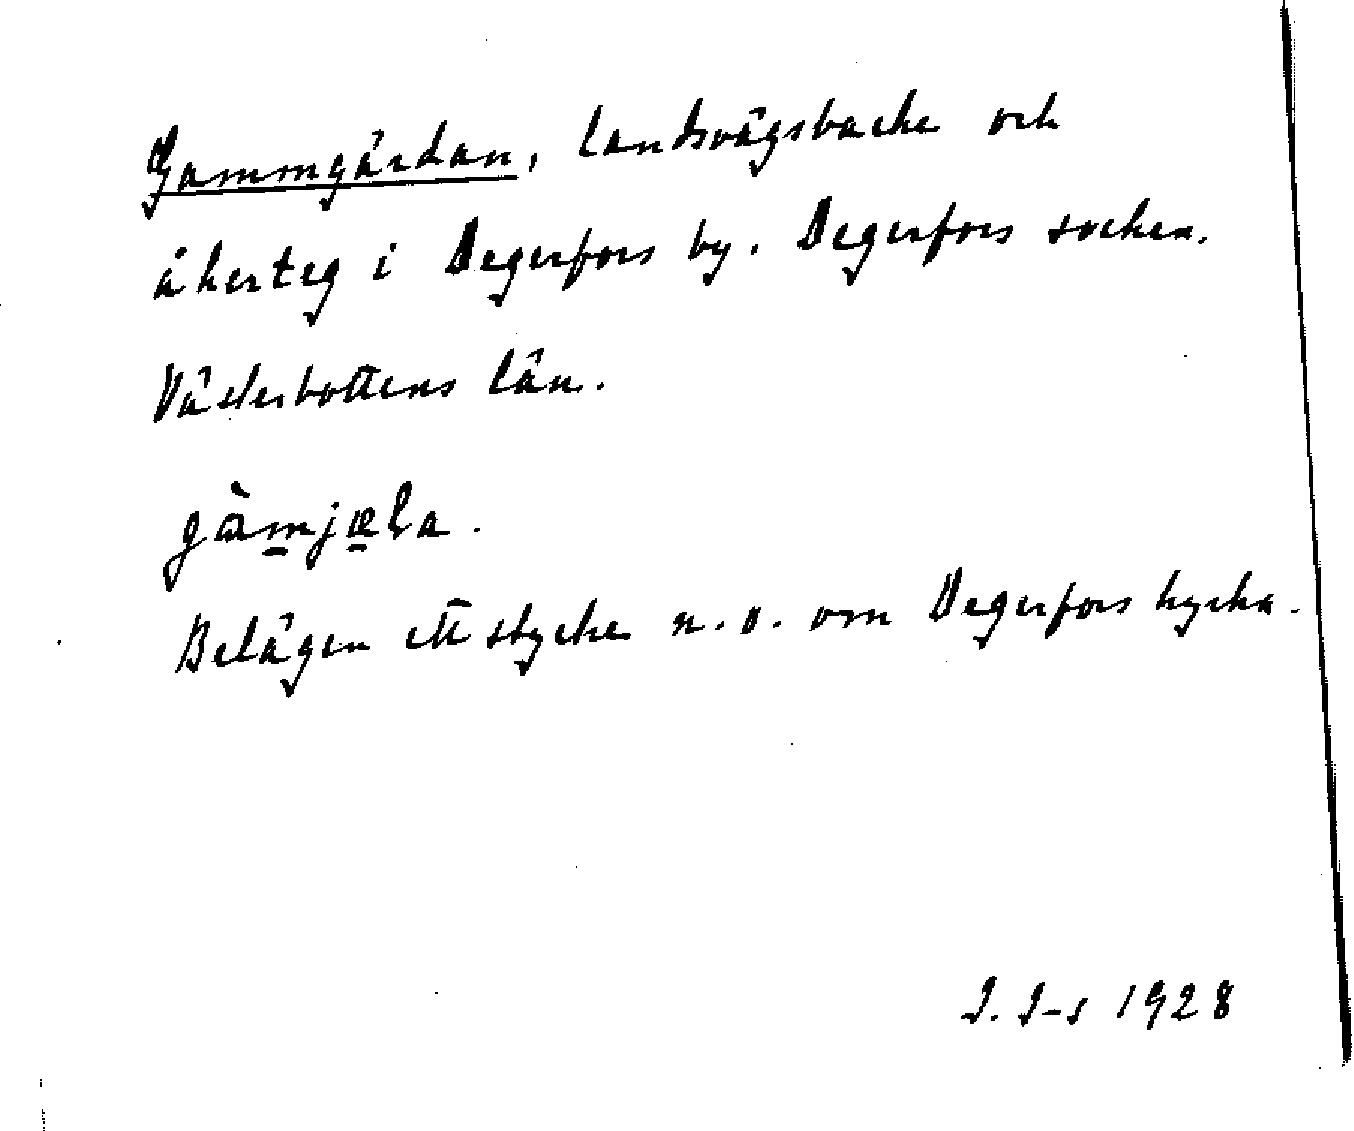 Gammgårdan, landsvägsbacke och
åkerteg i Degerfors by. Degerfors socken.
Västerbottens län.
gàmjæla.
Belägen ett stycke n.o. om Degerfors kyrka.
J. J-s 1928